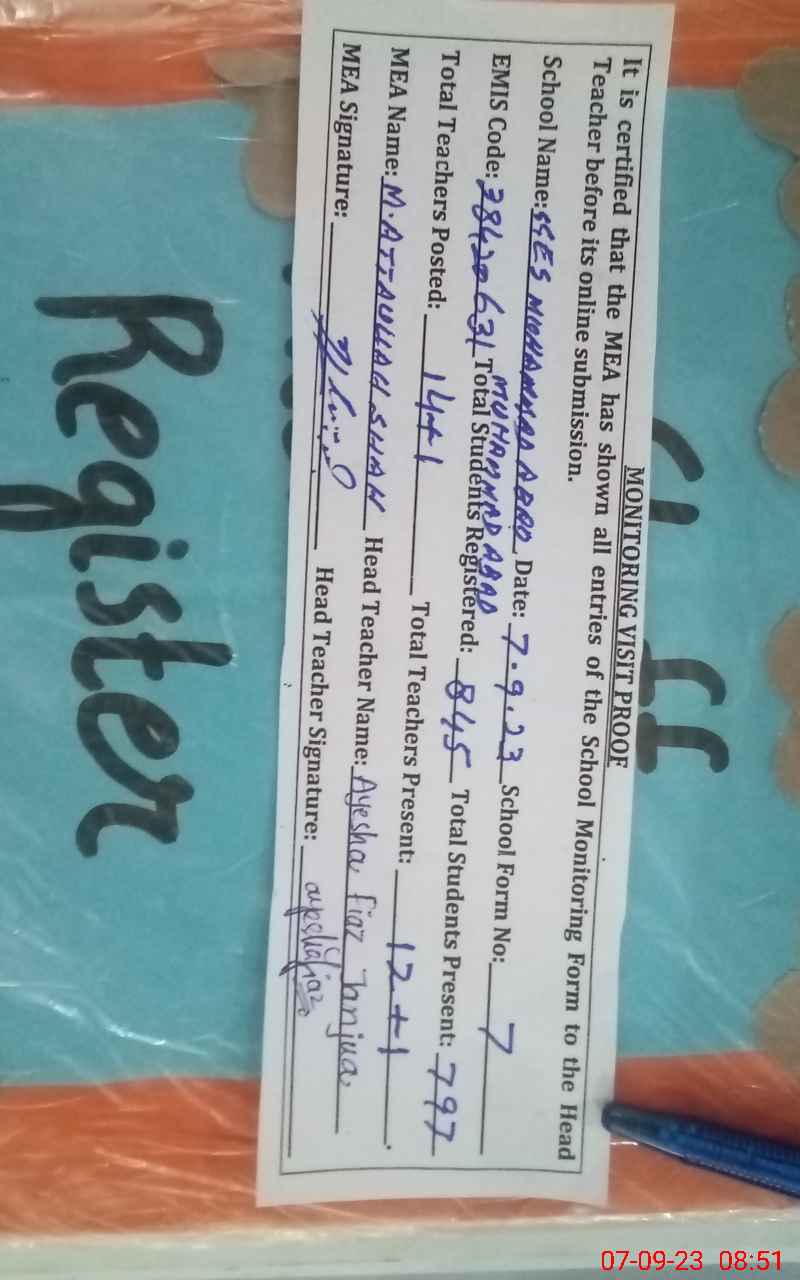 MONITORING VISIT PROOF
It is certified that the MEA has shown all entries of the School Monitoring Form to the Head
Teacher before its online submission.
School Name: GGES MUHAMMAD ABAD Date: 7.9.23 School Form No: 7
MUHAMMAD ABAD
EMIS Code: 38420631 Total Students Registered: 845 Total Students Present: 797
Total Teachers Posted: 14+1 Total Teachers Present: 12+1.
MEA Name: M.ATTAULLAH SHAH Head Teacher Name: Ayesha fiaz Janjua
MEA Signature: Head Teacher Signature: ayeshafiaz
Register
07-09-23 08:51